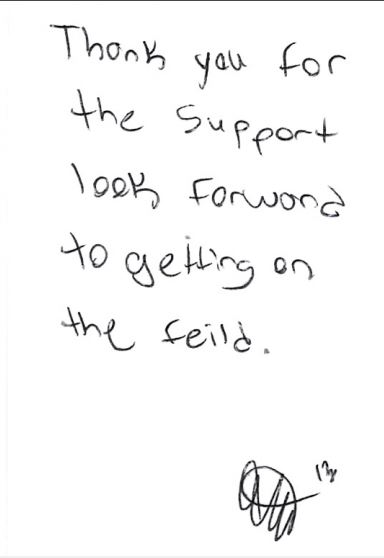 Thank you for
the support
look forward
to getting on
the feild.